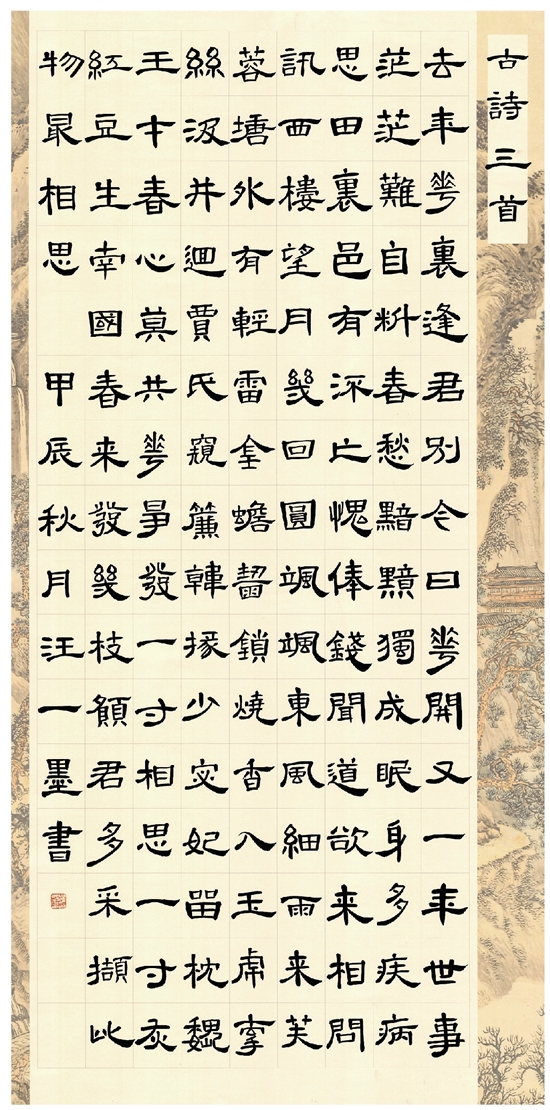 古詩三首
去年華裏逢君別今日華開又一年世事
茫茫難自料春愁黯黯獨成眠身多疾病
思田裏邑有流亡愧俸錢聞道欲来相問
訊西樓望月幾回圓颯颯東風細雨来芙
蓉塘外有輕雷金蟾齧鎖燒香入玉虎牽
絲汲井迴賈氏窺簾韓掾少宓妃留枕魏
王才春心莫共華爭發一寸相思一寸灰
紅豆生南國春来發幾枝願君多采擷此
物最相思 甲辰秋月汪一墨書